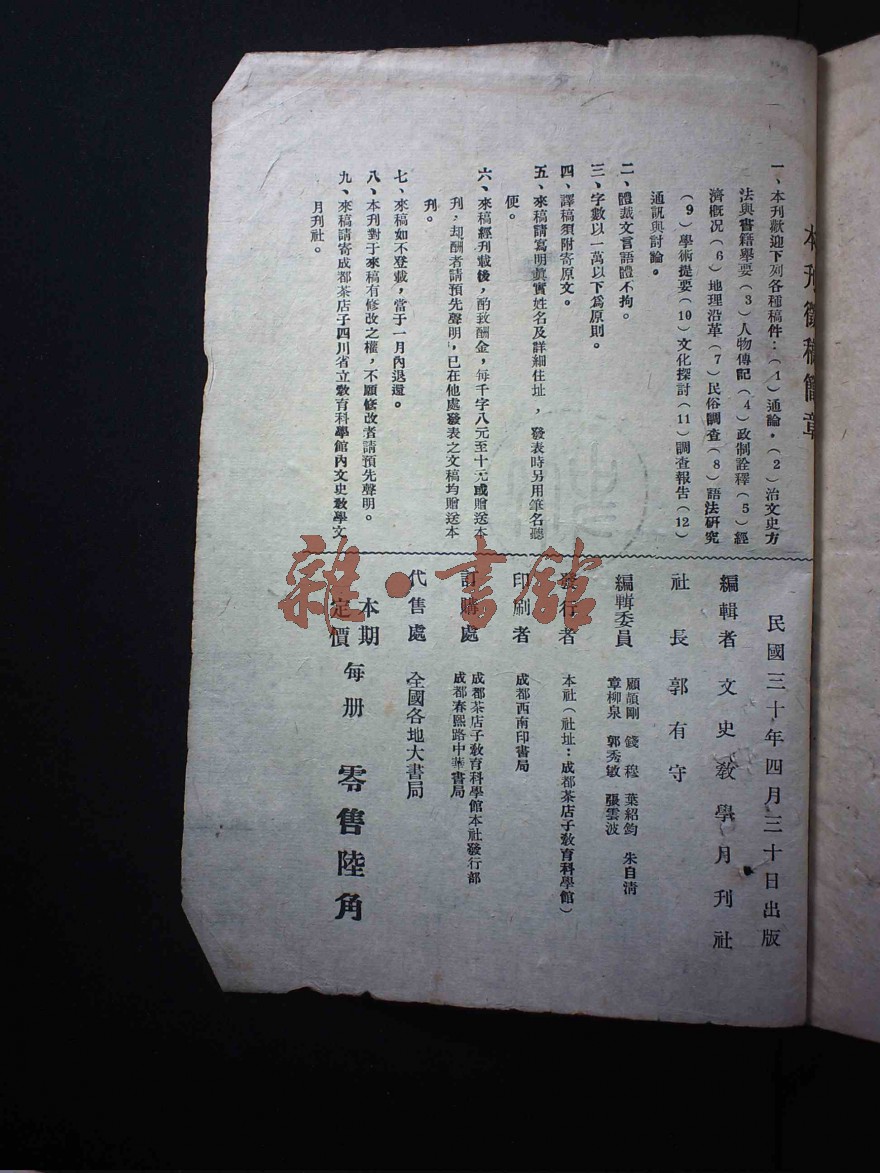 本刊徵稿簡章
一、本刊歡迎下列各種稿件：（1）通論，（2）治文史方
法與書籍舉要（3）人物傳記（4）政制詮釋（5）經
濟概况（6）地理沿革（7）民俗調查（8）語法研究
（9）學術提要（10）文化探討（11）調查報告（12）
通訊與討論。
二、體裁文言語體不拘。
三、字數以一萬以下爲原則。
四、譯稿須附寄原文。
五、來稿請寫明眞實姓名及詳細住址，發表時另用筆名聽
便。
六、來稿經刊載後，酌致酬金，每千字八元至十元或贈送本
刊，却酬者請預先聲明，已在他處發表之文稿均贈送本
刊。
七、來稿如不登載，當于一月內退還。
八、本刊對于來稿有修改之權，不願修改者請預先聲明。
九、來稿請寄成都茶店子四川省立敎育科學館內文史敎學文
月刊社。
民國三十年四月三十日出版
編輯者 文史敎學月刊社
社長 郭有守
編輯委員 顧頡剛 錢穆 葉紹鈞 朱自淸
章柳泉 郭秀敏 張雲波
發行者 本社（社址：成都茶店子敎育科學館）
印刷者 成都西南印書局
訂購處 成都茶店子敎育科學館本社發行部
成都春熙路中華書局
代售處 全國各地大書局
本期
定價 每册 零售陸角
雜·書館